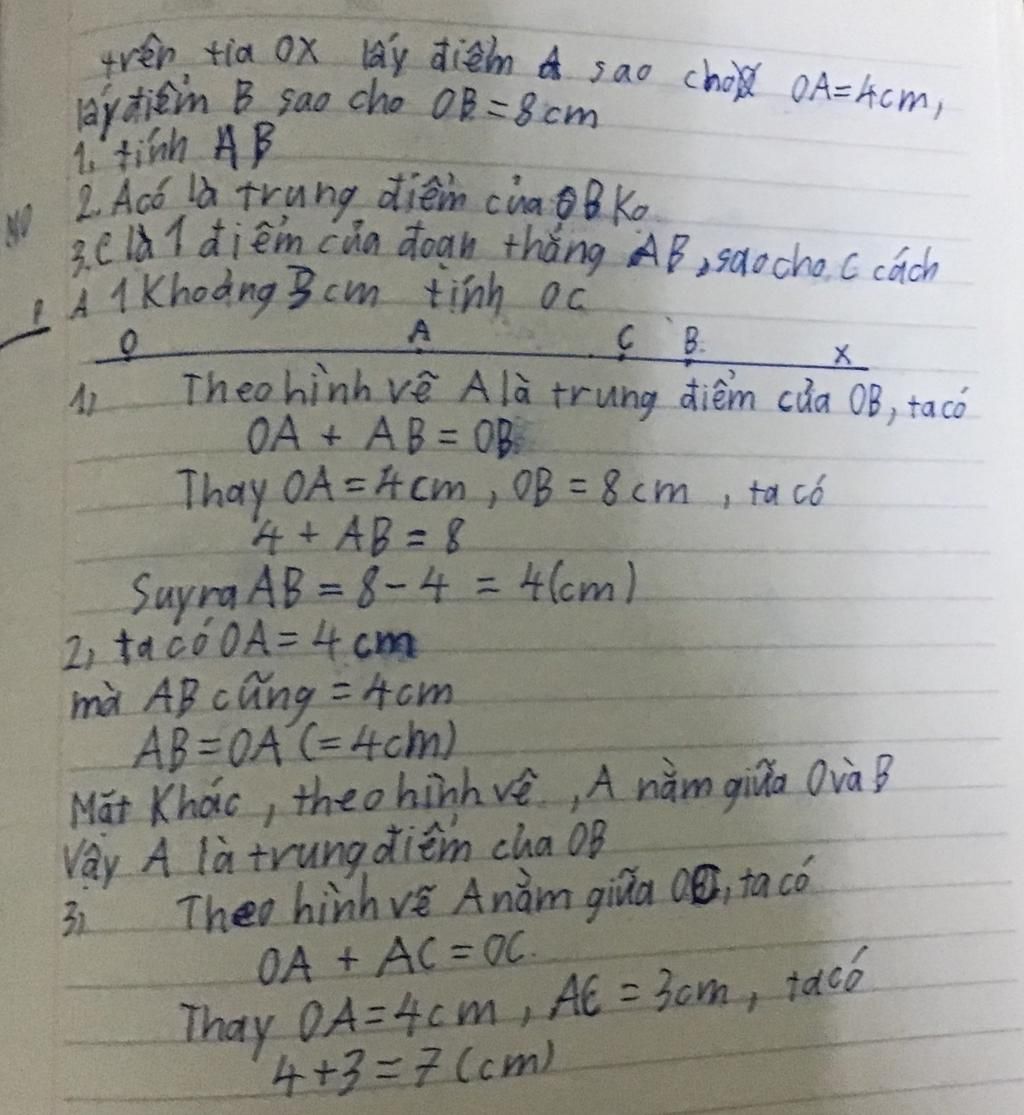 trên tia OX lấy điểm A sao cho OA = 4cm,
lấy điểm B sao cho OB = 8cm
1, tính AB
2. A có là trung điểm của OB Ko
3, C là 1 điểm của đoạn thẳng AB, sao cho C cách
A 1 Khoảng 3 cm tính OC
O A C B x
1, Theo hình vẽ A là trung điểm của OB, ta có
OA + AB = OB
Thay OA = 4cm, OB = 8cm, ta có
4 + AB = 8
Suy ra AB = 8 - 4 = 4(cm)
2, ta có OA = 4 cm
mà AB cũng = 4cm
AB = OA (= 4cm)
Mặt Khác, theo hình vẽ, A nằm giữa O và B
Vậy A là trung điểm của OB
3, Theo hình vẽ A nằm giữa OC, ta có
OA + AC = OC.
Thay OA = 4cm, AC = 3cm, ta có
4 + 3 = 7 (cm)